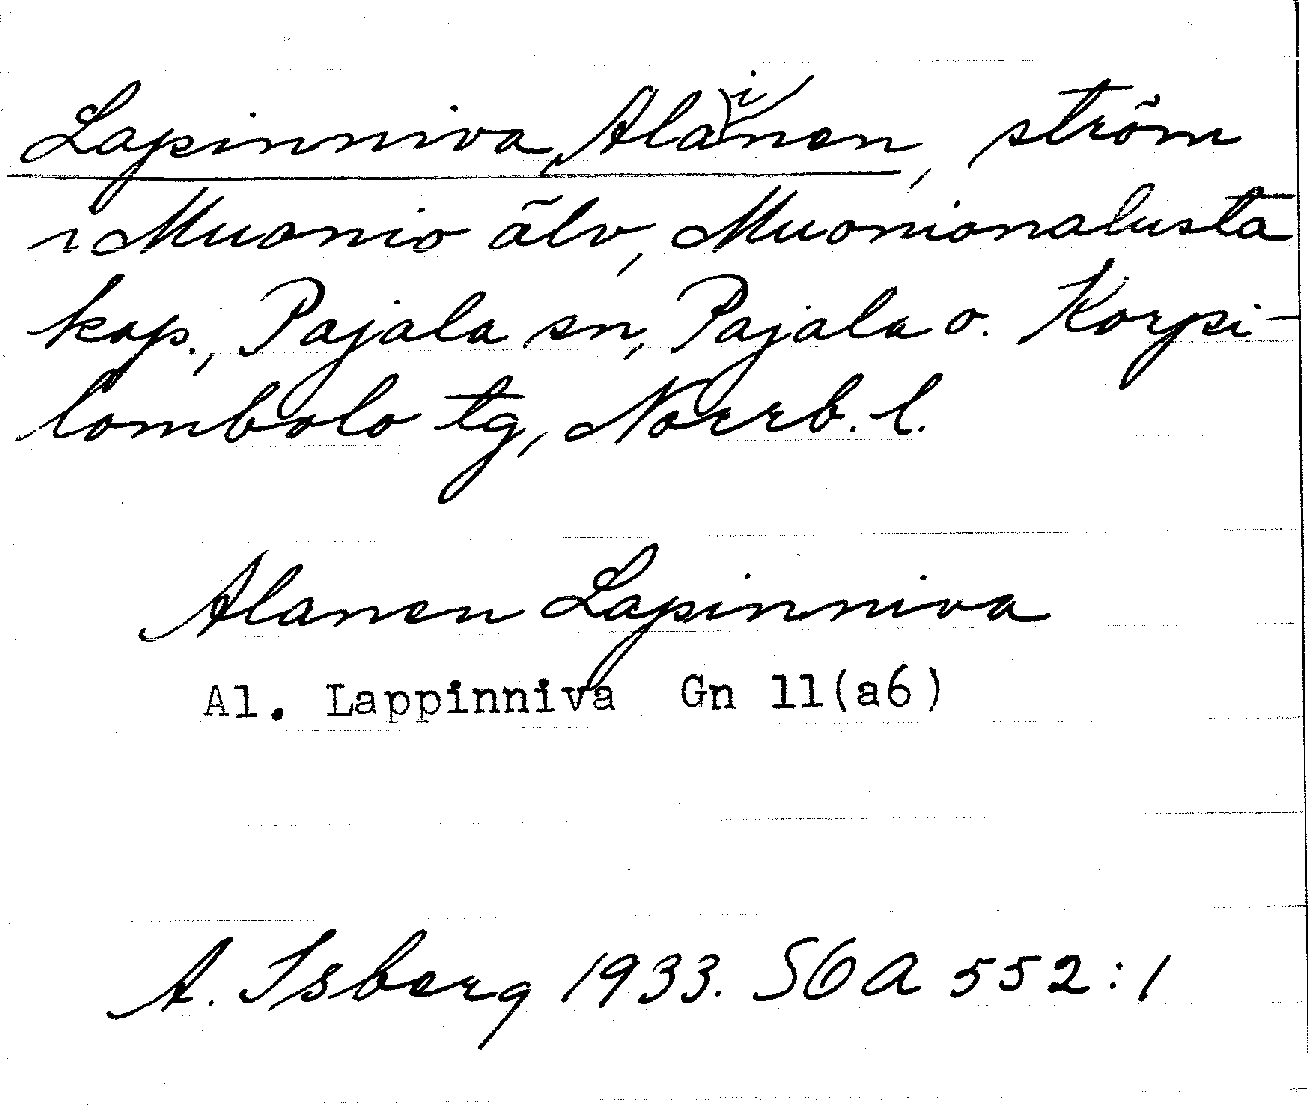 Lapinniva, Alainen, ström
i Muonio älv, Muonionalusta
kap., Pajala sn, Pajala o. Korpi-
lombolo tg, Norrb. l.
Alanen Lapinniva
Al. Lappinniva Gn 11(a6)
A. Isberg 1933. SOA 552:1